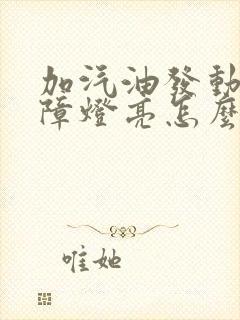 加汽油發動
障燈亮怎麼
唯她